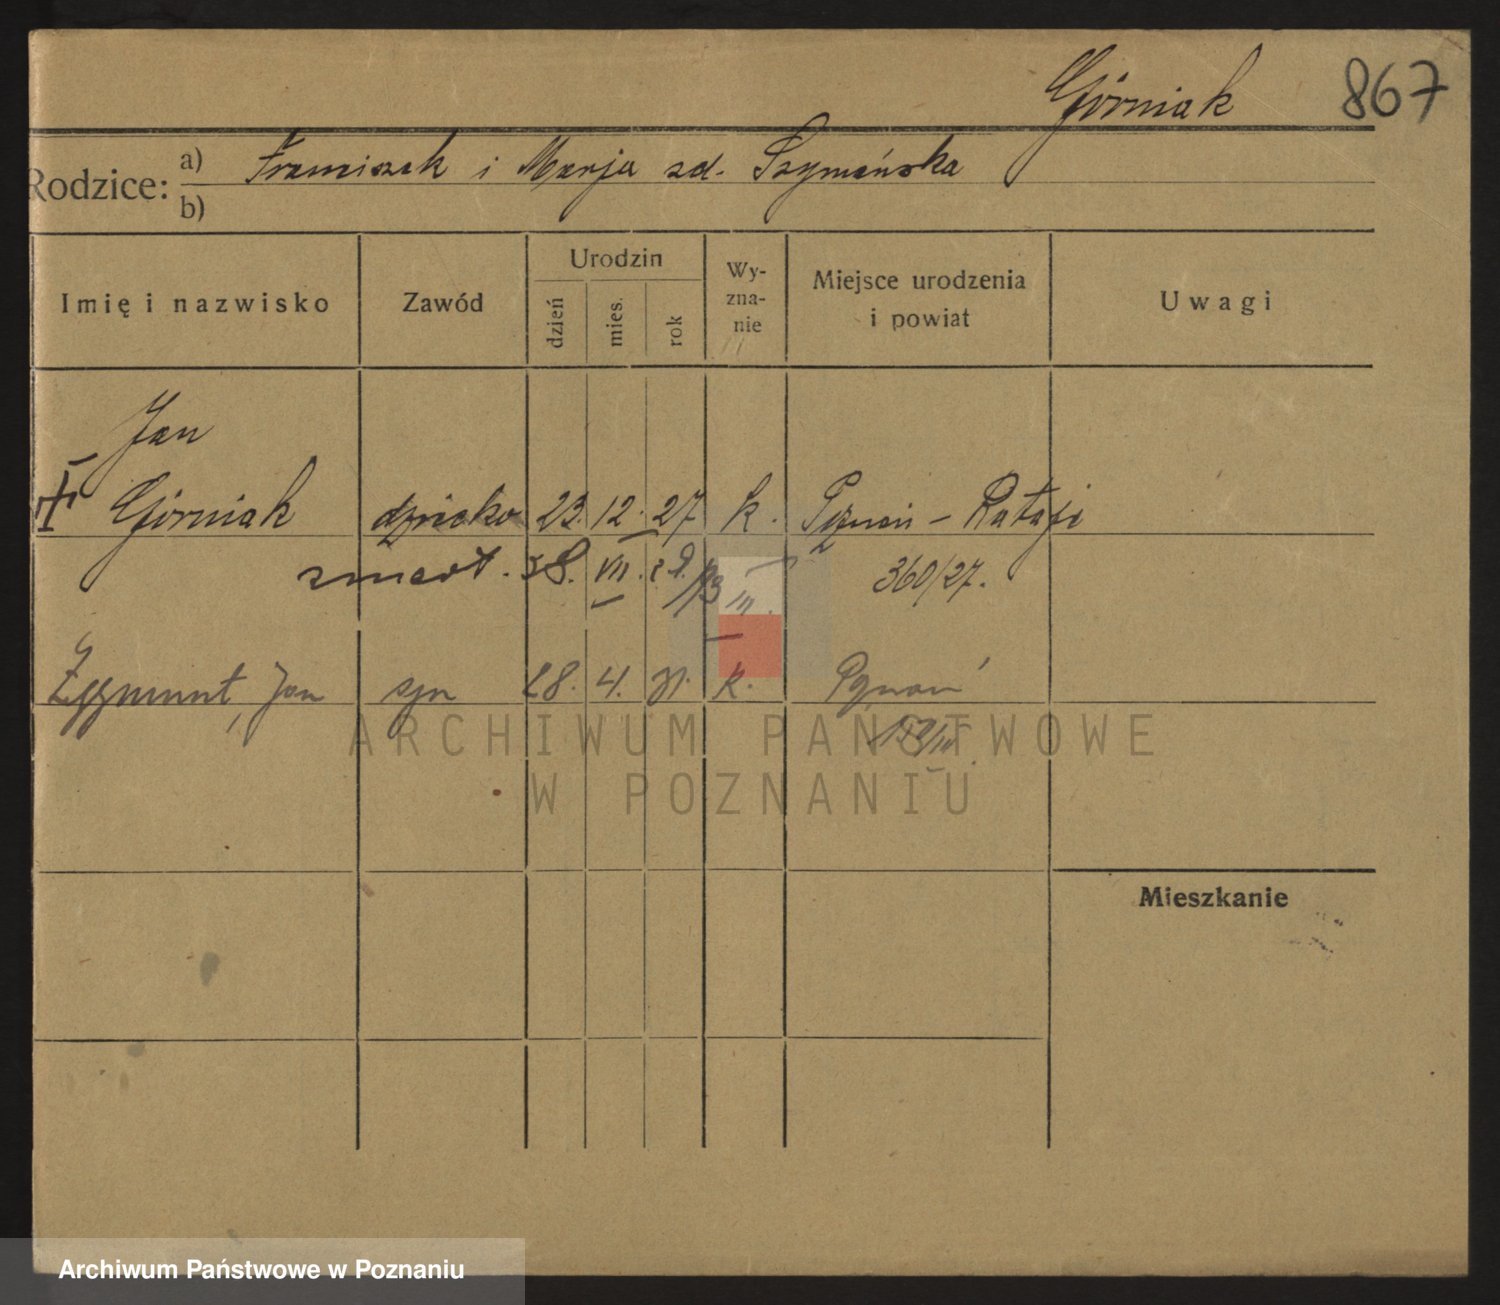 Górniak 867
Rodzice: a) Franciszek i Marja zd. Szymańska
b)
Imię i nazwisko Zawód Urodzin dzień mies. rok Wy-zna-nie Miejsce urodzenia i powiat Uwagi
Jan
Górniak dziecko 23. 12. 27 k. Poznań - Rataje
zmarł. 28. VII. 360/27.
Zygmunt, Jan syn 28. 4. 31. k. Poznań
ARCHIWUM PAŃSTWOWE
W POZNANIU
Mieszkanie
Archiwum Państwowe w Poznaniu